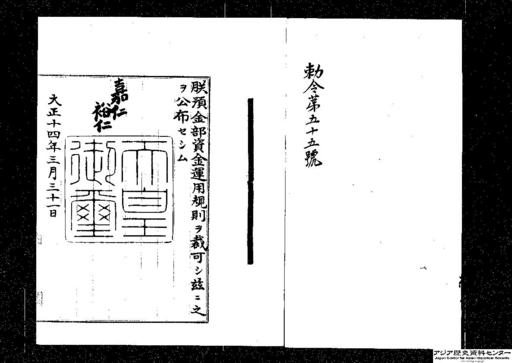 勅令第五十五號
朕預金部資金運用規則ヲ裁可シ茲ニ之
ヲ公布セシム
嘉仁
裕仁
天皇
御璽
大正十四年三月三十一日
アジア歴史資料センター
Japan Center for Asian Historical Records